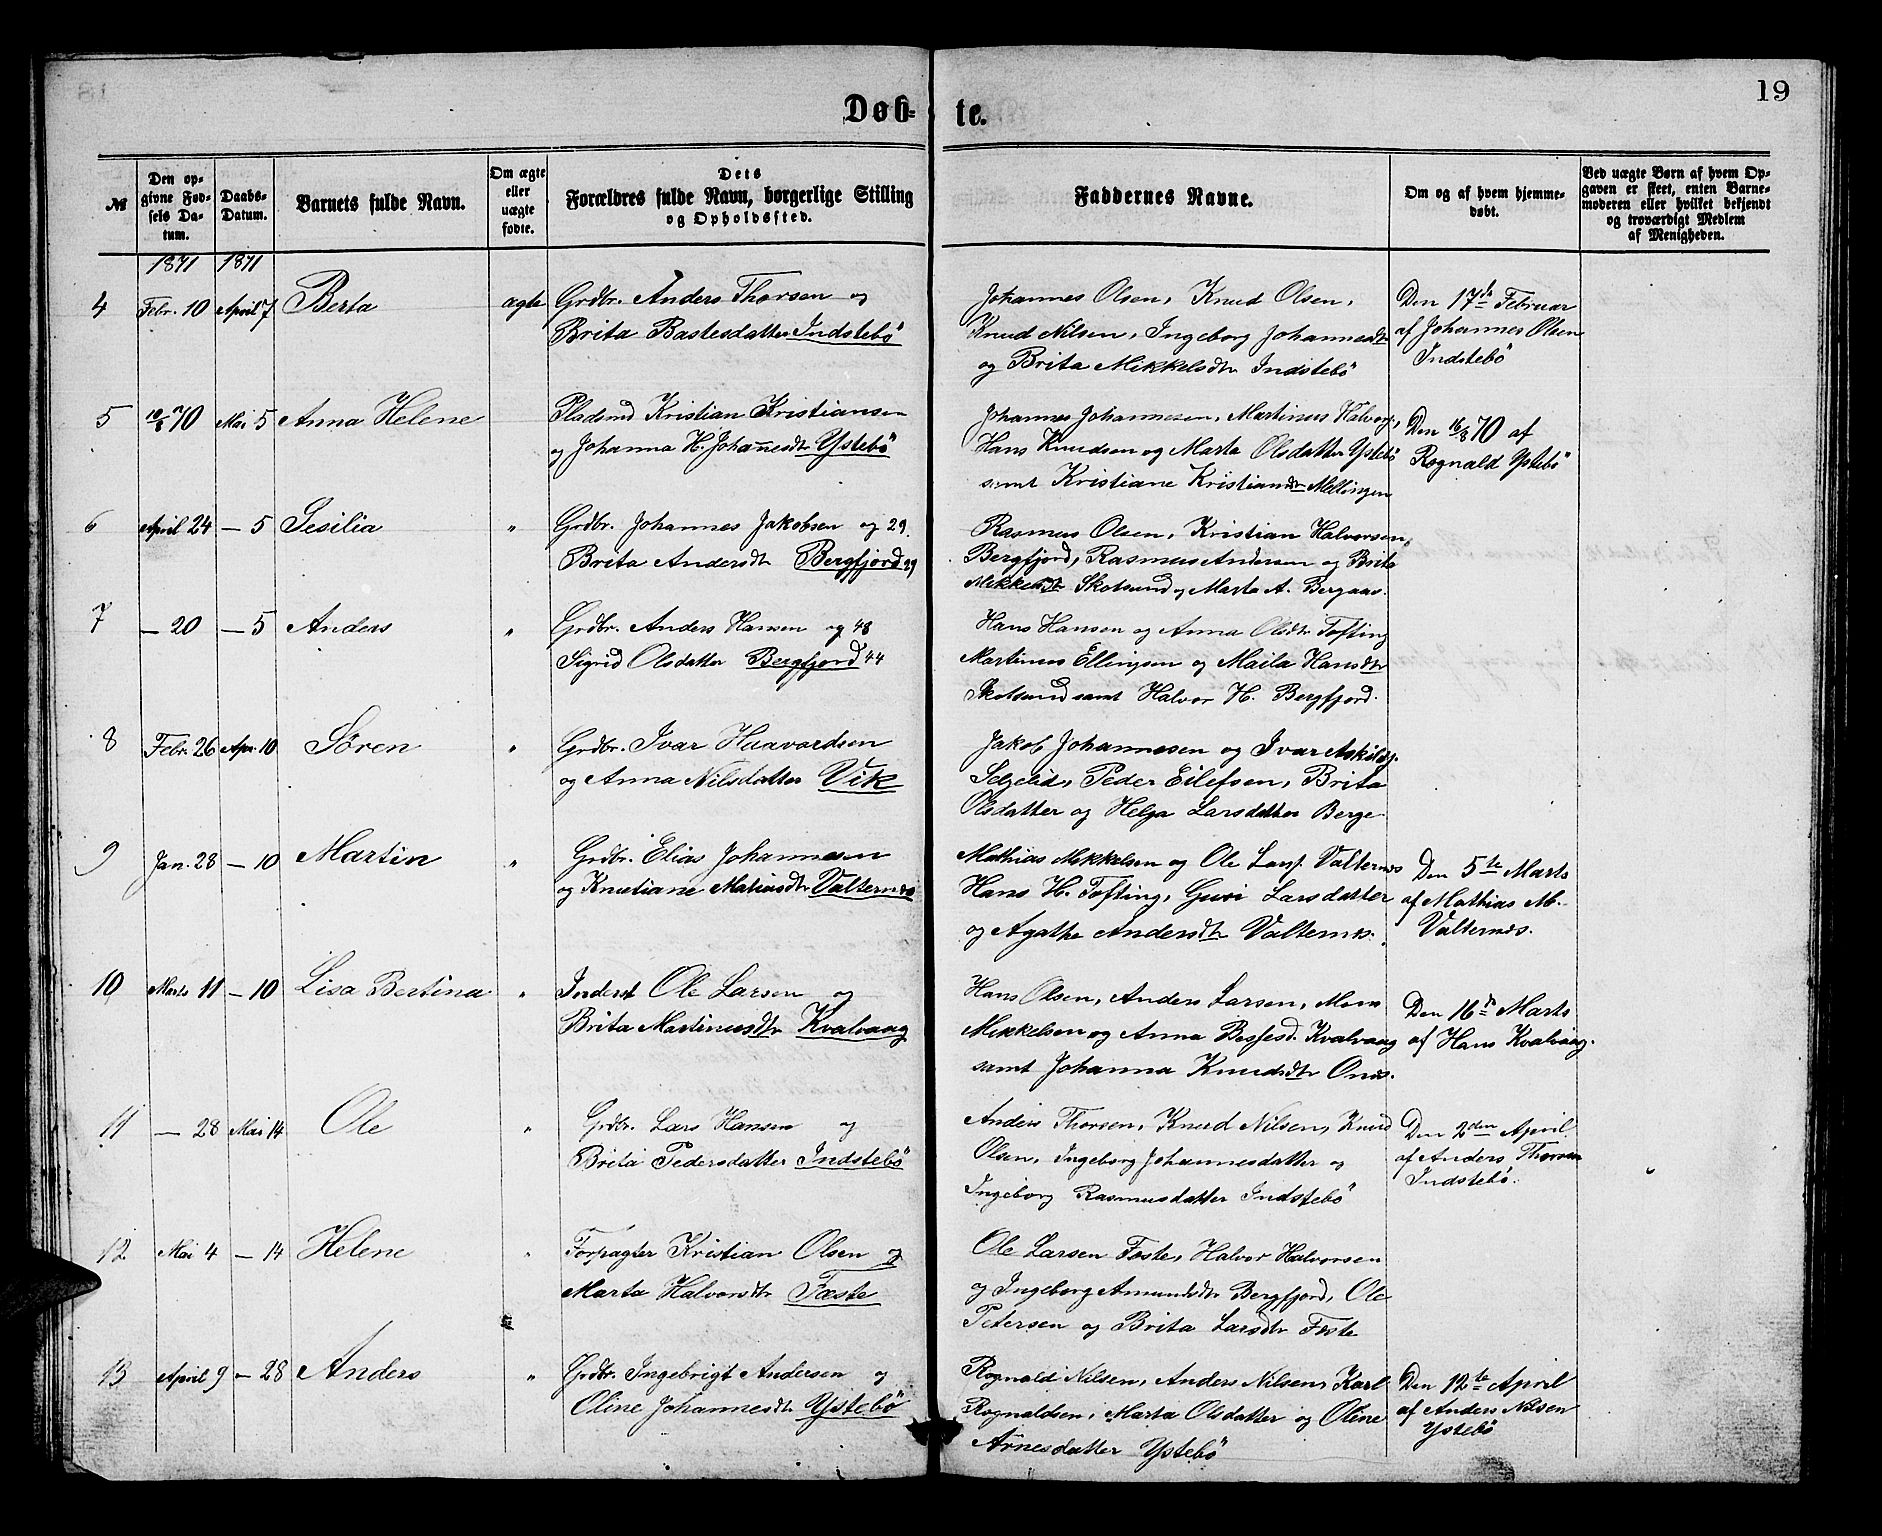 19
Døb- te.
№
Den op-
givne Fød-
sels Da-
tum.
Daabs-
Datum.
Barnets fulde Navn.
Om ægte
eller
uægte
fødte.
Dets
Forældres fulde Navn, borgerlige Stilling
og Opholdssted.
Faddernes Navne.
Om og af hvem hjemme-
døbt.
Ved uægte Børn af hvem Op-
gaven er skeet, enten Barne-
moderen eller hvilket bekjendt
og troværdigt Medlem
af Menigheden.
1871 1871
4 Febr. 10 April 7 Berta ægte
Grdbr. Anders Thorsen og
Brita Bastesdatter Indstebö
Johannes Olsen, Knud Olsen,
Knud Nilsen, Ingeborg Johannesdtr
og Brita Mikkelsdtr Indstebö
Den 17de Februar
af Johannes Olsen
Indstebö
5 10/8 70 Mai 5 Anna Helene
Pladsmd Kristian Kristiansen
og Johanna H. Johan̄esdtr Ystebö
Johannes Johannesen, Martinus Halvors.,
Hans Knudsen og Marta Olsdatter Ystebö
samt Kristiane Kristiansdtr Mellingen
Den 16/8 70 af
Rognald Ystebö
6 April 24 — 5 Sesilia "
Grdbr. Johannes Jakobsen og 29.
Brita Andersdtr Bergfjord 29
Rasmus Olsen, Kristian Halvorsen,
Bergfjord, Rasmus Andersen og Brita
Mikkelsdtr Skotsund og Marta A. Bergaas.
7 — 20 — 5 Anders "
Grdbr. Anders Hansen og 48
Sigrid Olsdatter Bergfjord 44
Hans Hansen og Anna Olsdtr Tofting
Martinus Ellingsen og Maila Hansdtr
Skotsund samt Halvor H. Bergfjord.
8 Febr. 26 Apr. 10 Sören "
Grdbr. Ivar Haavardsen
og Anna Nilsdatter Vik
Jakob Johannesen og Ivar Askilds.
Seljelid, Peder Eilefsen, Brita
Olsdatter og Helga Larsdatter Berge
9 Jan. 28 — 10 Martin "
Grdbr. Elias Johannesen
og Kristiane Matiasdtr Valternæs
Mathias Mikkelsen og Ole Lars. Valternæs
Hans H. Tofting, Guri Larsdatter
og Agathe Andersdtr Valternæs.
Den 5te Marts
af Mathias M.
Valternæs.
10 Marts 11 — 10 Lisa Bertina "
Inderst Ole Larsen og
Brita Martinusdtr Kvalvaag
Hans Olsen, Anders Larsen, Mons
Mikkelsen og Anna Besfesd. Kvalvaag
samt Johanna Knudsdtr Onæs.
Den 16de Marts
af Hans Kvalvaag.
11 — 28 Mai 14 Ole "
Grdbr. Lars Hansen og
Brita Pedersdatter Indstebö
Anders Thorsen, Knud Nilsen, Knud
Olsen, Ingeborg Johannesdatter og
Ingeborg Rasmusdatter Indstebö
Den 2den April
af Anders Thorsen
Indstebö.
12 Mai 4 — 14 Helene "
Forpagter Kristian Olsen og
Marta Halvorsdtr Fæste
Ole Larsen Fæste, Halvor Halvorsen
og Ingeborg Amundsdtr Bergfjord, Ole
Petersen og Brita Larsdtr Fæste
13 April 9 — 28 Anders "
Grdbr. Ingebrigt Andersen og
Oline Johannesdtr Ystebö
Rognald Nilsen, Anders Nilsen, Karl
Rognaldsen, Marta Olsdatter og Oline
Arnesdatter Ystebö
Den 12te April
af Anders Nilsen
Ystebö